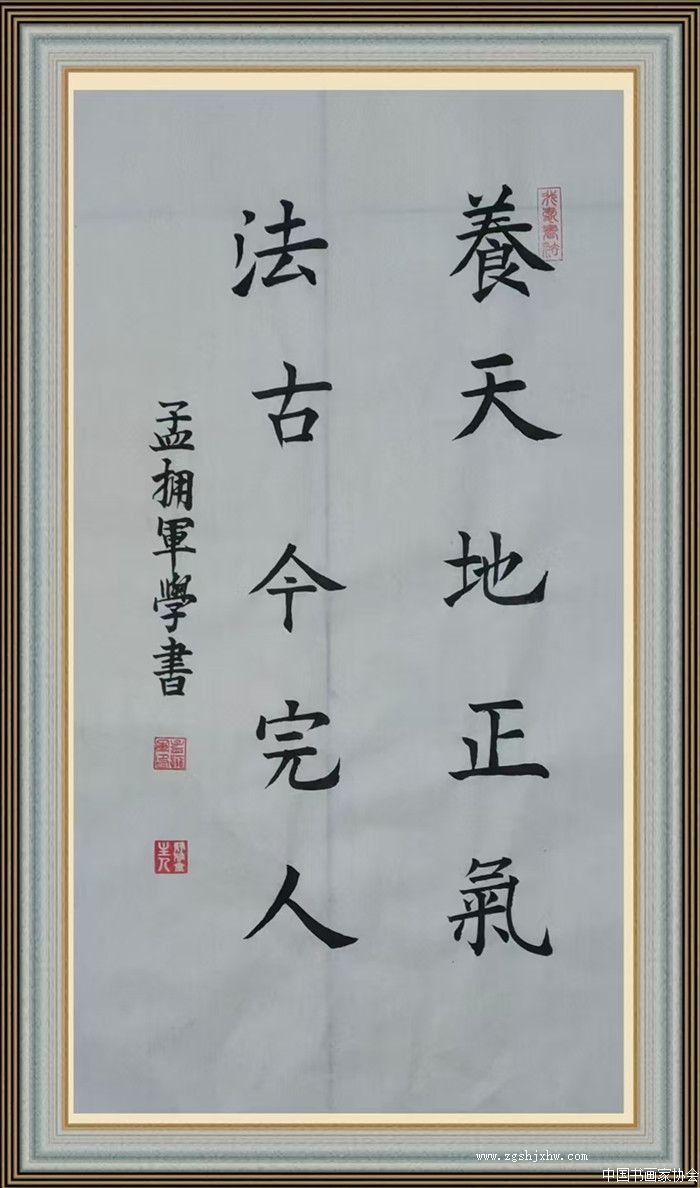 養天地正氣
法古今完人
孟拥軍學書
www.zgshjxhw.com
中国书画家协会